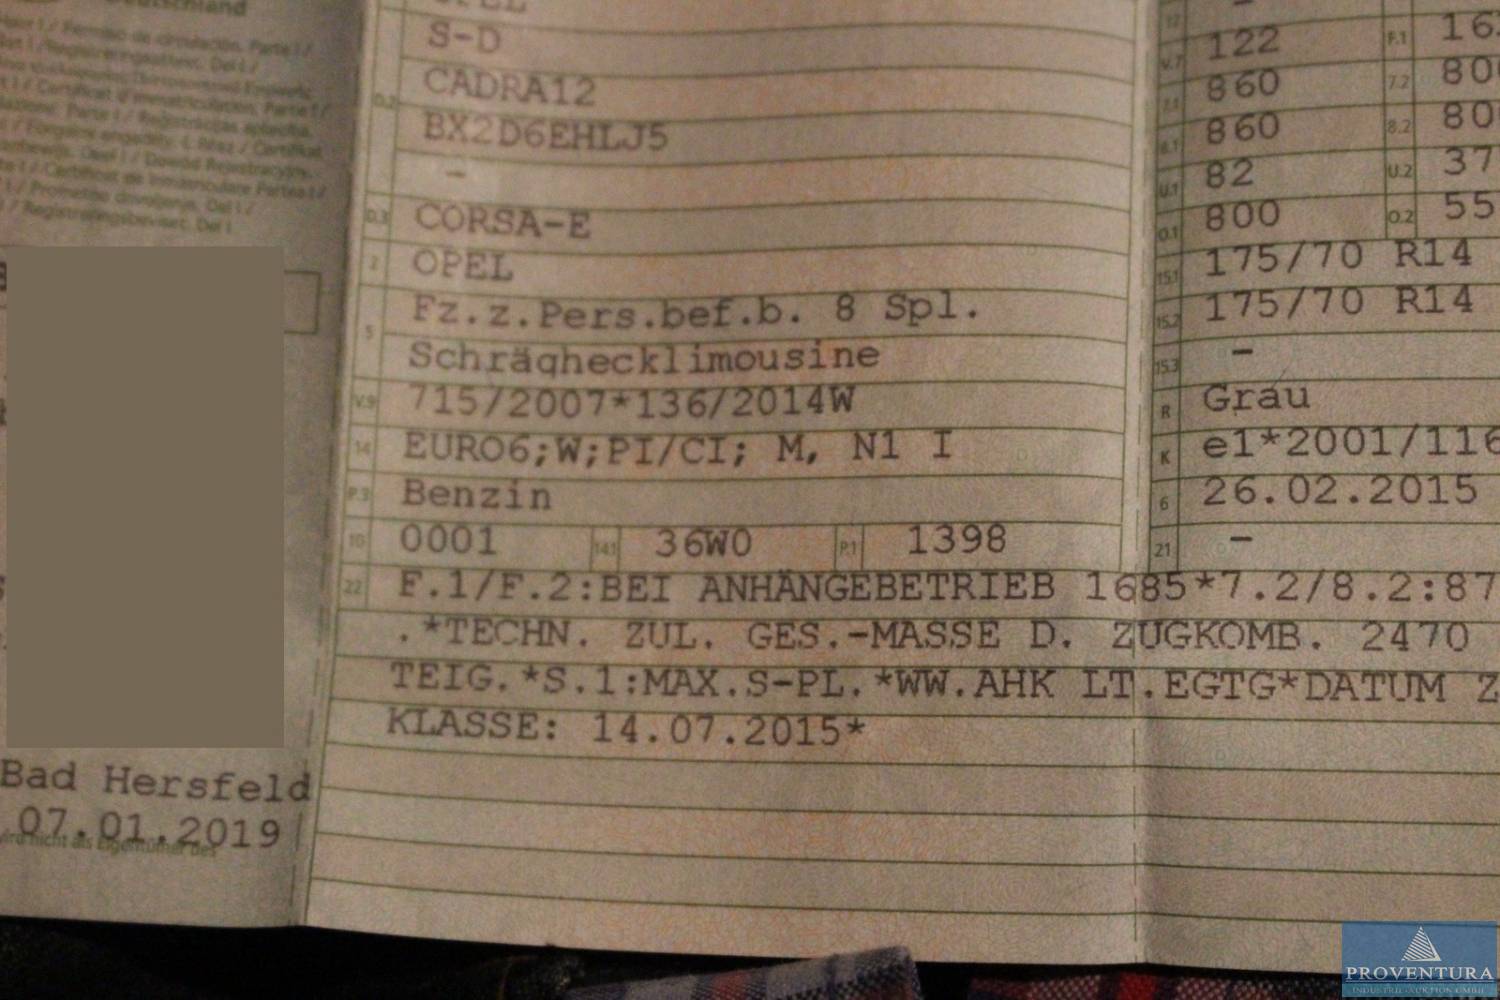 Deutschland
OPEL
S-D
D.2 CADRA12
BX2D6EHLJ5
-
D.3 CORSA-E
2 OPEL
5 Fz.z.Pers.bef.b. 8 Spl.
Schräghecklimousine
V.9 715/2007*136/2014W
14 EURO6;W;PI/CI; M, N1 I
P.3 Benzin
10 0001 14.1 36W0 P.1 1398
22 F.1/F.2:BEI ANHÄNGEBETRIEB 1685*7.2/8.2:87
.*TECHN. ZUL. GES.-MASSE D. ZUGKOMB. 2470
TEIG.*S.1:MAX.S-PL.*WW.AHK LT.EGTG*DATUM Z
KLASSE: 14.07.2015*
12 -
V.7 122 F.1 16
7.1 860 7.2 80
8.1 860 8.2 80
U.1 82 U.2 37
O.1 800 O.2 55
15.1 175/70 R14
15.2 175/70 R14
15.3 -
R Grau
K e1*2001/116
6 26.02.2015
21 -
Bad Hersfeld
07.01.2019
PROVENTURA
INDUSTRIE-AUKTION GMBH